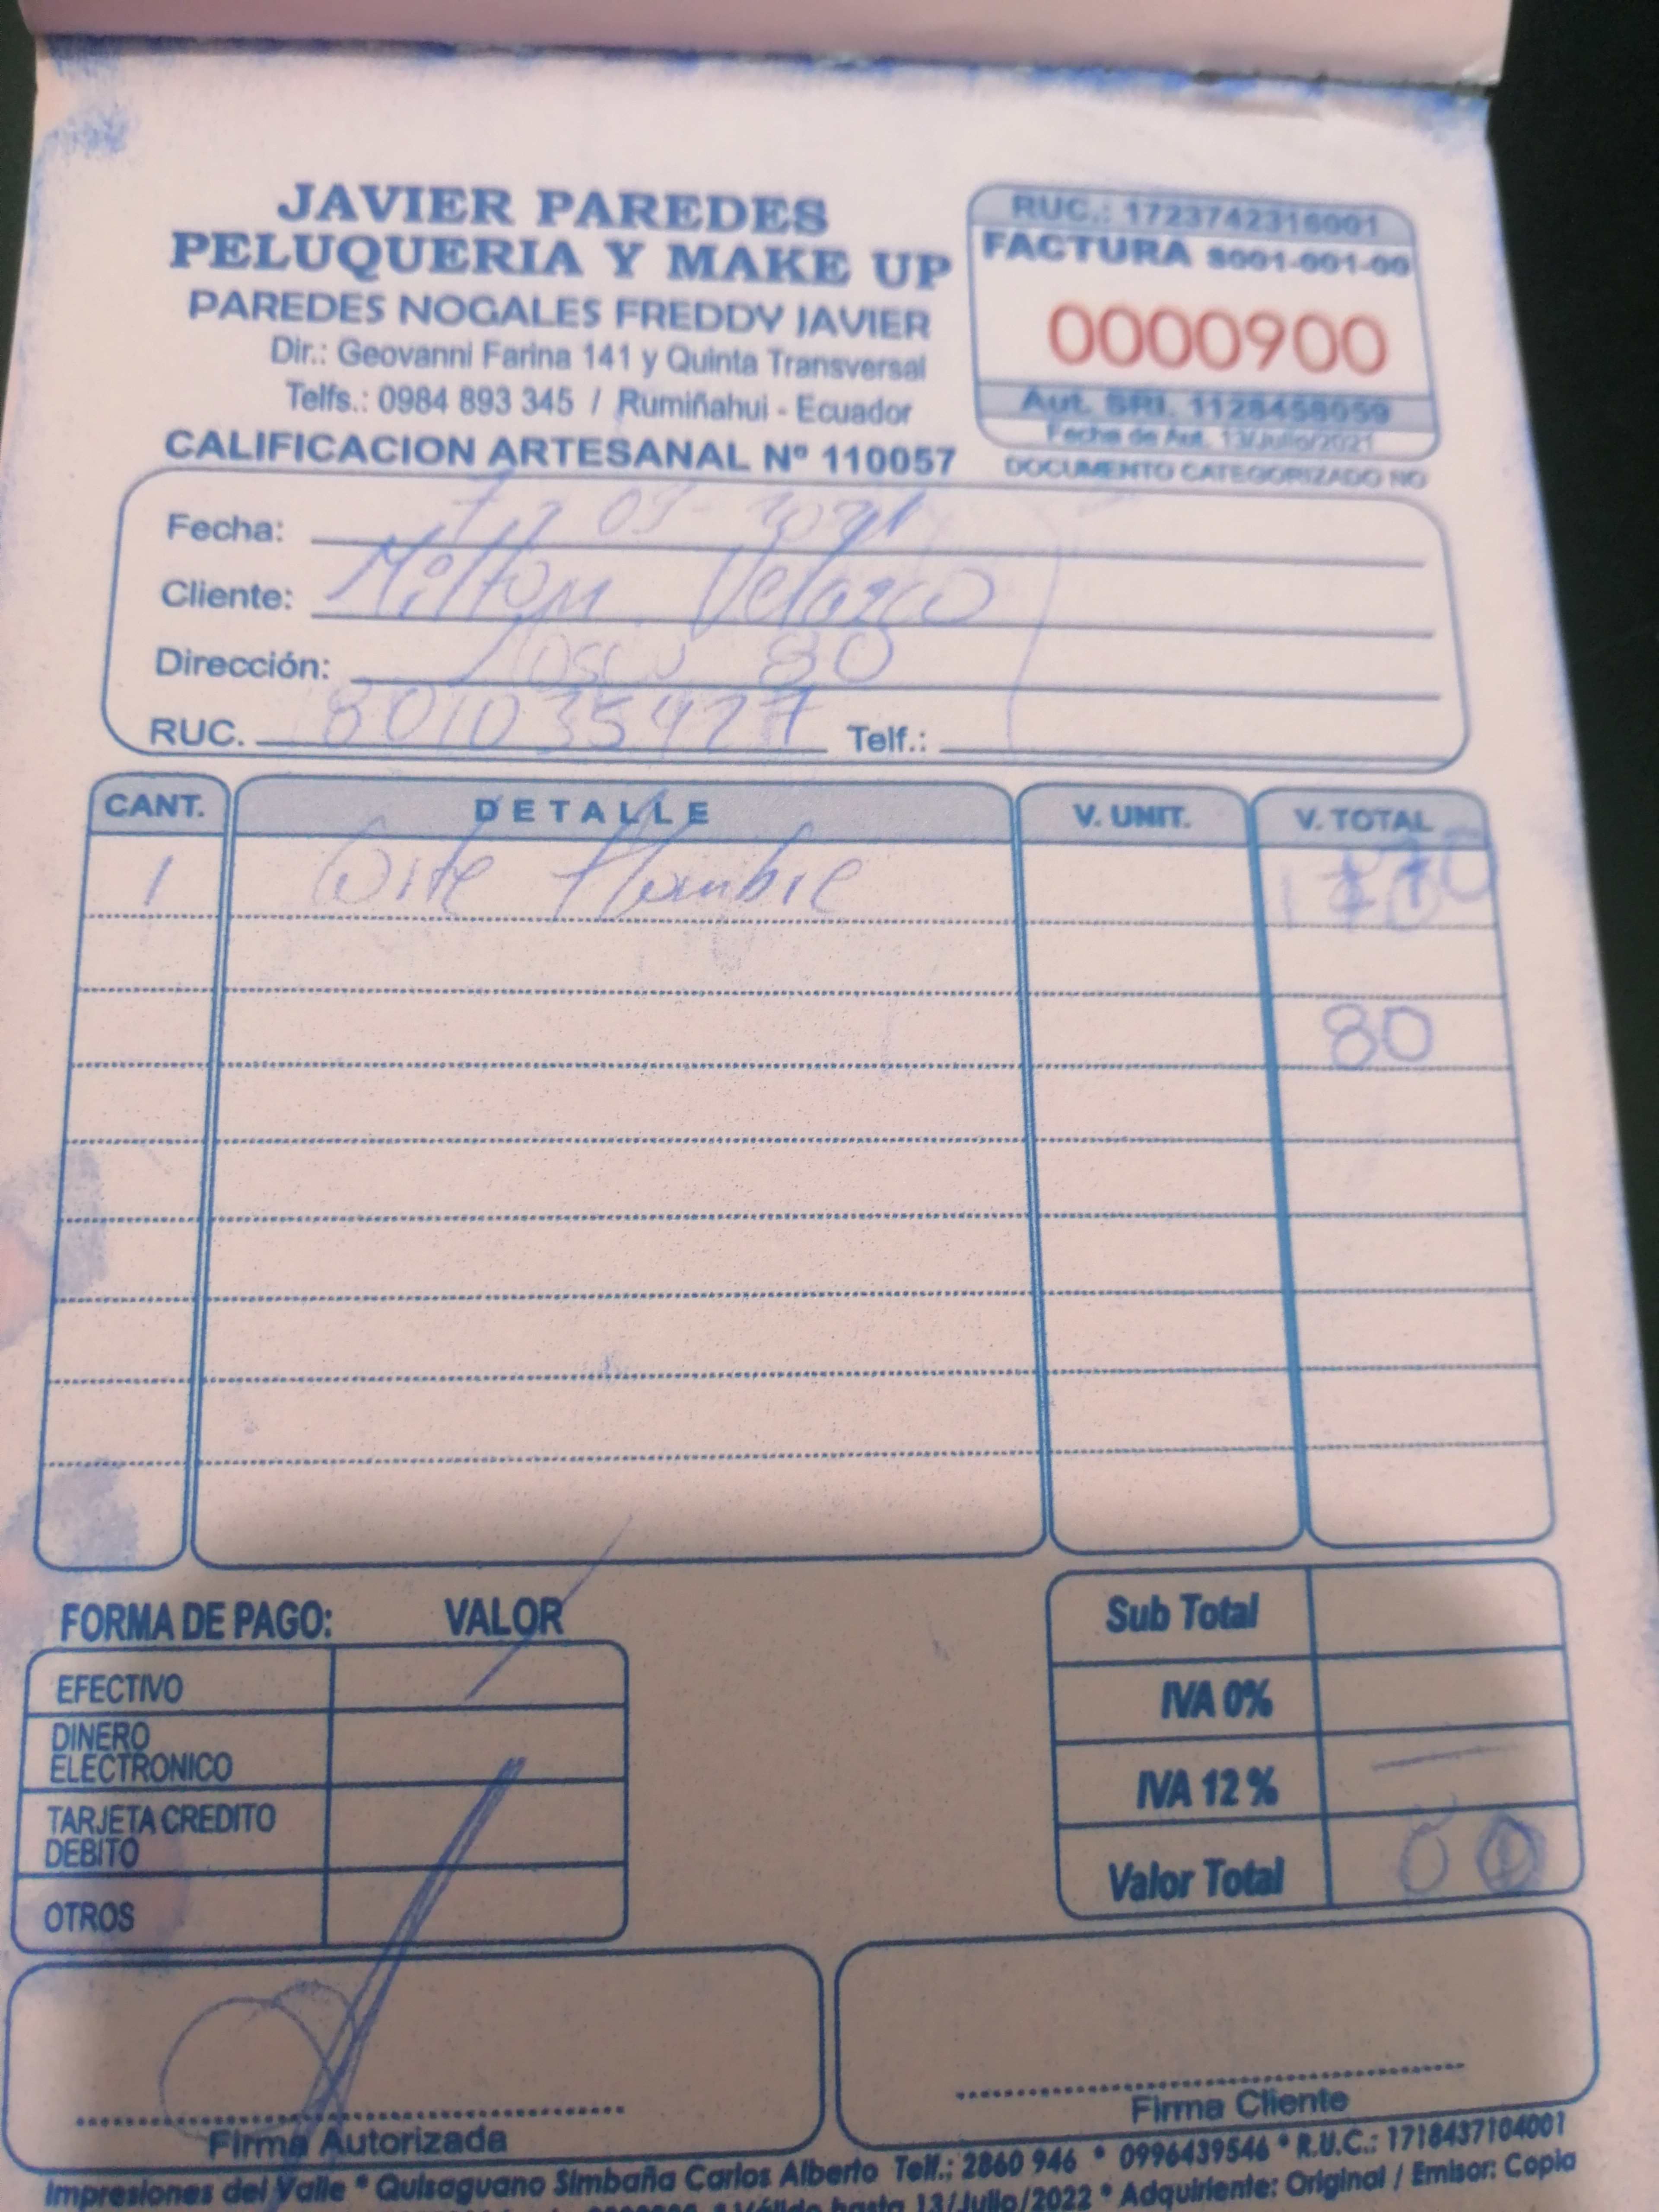 JAVIER PAREDES
PELUQUERIA Y MAKE UP
PAREDES NOGALES FREDDY JAVIER
Dir.: Geovanni Farina 141 y Quinta Transversal
Telfs.: 0984 893 345 / Rumiñahui - Ecuador
CALIFICACION ARTESANAL Nº 110057
RUC.: 1723742316001
FACTURA S001-001-00
0000900
Aut. SRI. 1128458059
Fecha de Aut. 13/Julio/2021
DOCUMENTO CATEGORIZADO NO
Fecha:
Cliente: Milton Velazco
Dirección: 80
RUC. Telf.:
CANT. DETALLE V. UNIT. V. TOTAL
1 Corte Hombre
80
FORMA DE PAGO: VALOR
EFECTIVO
DINERO ELECTRONICO
TARJETA CREDITO DEBITO
OTROS
Sub Total
IVA 0%
IVA 12 %
Valor Total
Firma Autorizada
Firma Cliente
Impresiones del Valle * Quisaguano Simbaña Carlos Alberto Telf.: 2860 946 * 0996439546 * R.U.C.: 1718437104001
Válido hasta 13/Julio/2022 * Adquiriente: Original / Emisor: Copia